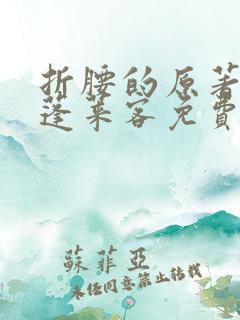 折腰的原著
蓬莱客免費
蘇菲亞
未經同意禁止轉載